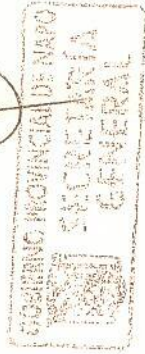 GOBIERNO PROVINCIAL DE NAPO
SECRETARÍA
GENERAL